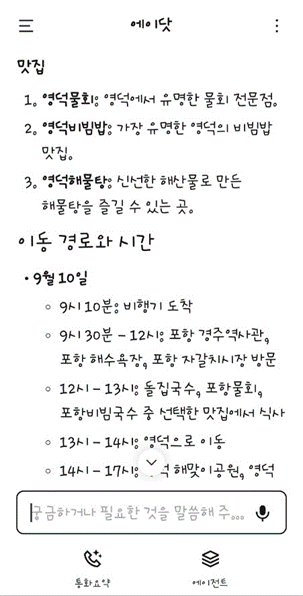 에이닷
맛집
1. 영덕물회: 영덕에서 유명한 물회 전문점.
2. 영덕비빔밥: 가장 유명한 영덕의 비빔밥
맛집.
3. 영덕해물탕: 신선한 해산물로 만든
해물탕을 즐길 수 있는 곳.
이동 경로와 시간
• 9월 10일
○ 9시 10분: 비행기 도착
○ 9시 30분 - 12시: 포항 경주역사관,
포항 해수욕장, 포항 자갈치시장 방문
○ 12시 - 13시: 돌집국수, 포항물회,
포항비빔국수 중 선택한 맛집에서 식사
○ 13시 - 14시: 영덕으로 이동
○ 14시 - 17시: 해맞이공원, 영덕
궁금하거나 필요한 것을 말씀해 주...
통화요약
에이전트